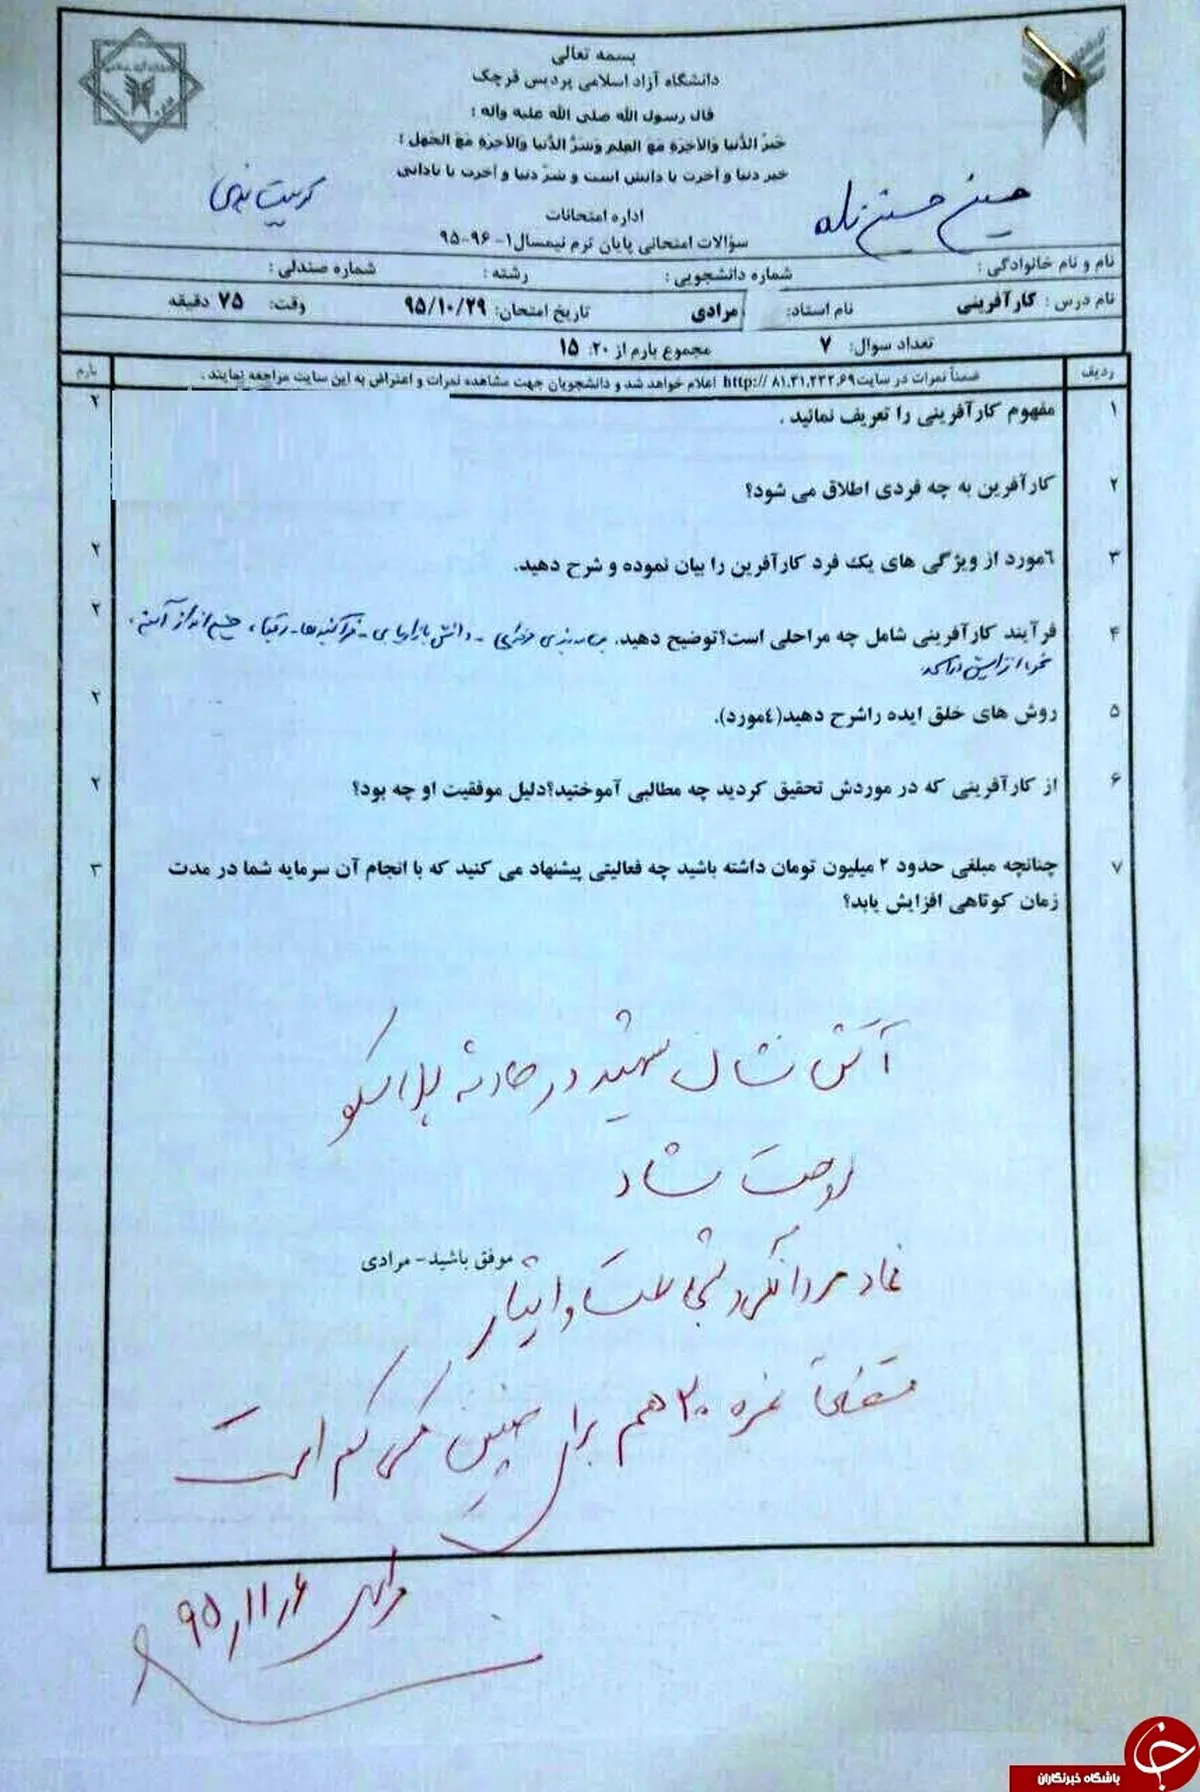 بسمه تعالی
دانشگاه آزاد اسلامی پردیس قرچک
قال رسول الله صلی الله علیه وآله :
خَیرُ الدُّنیا وَالآخِرَةِ مَعَ العِلمِ وَشَرُّ الدُّنیا وَالآخِرَةِ مَعَ الجَهلِ ؛
خیر دنیا و آخرت با دانش است و شرّ دنیا و آخرت با نادانی
حسین حسین زاده
تربیت بدنی
اداره امتحانات
سؤالات امتحانی پایان ترم نیمسال۱- ۹۶-۹۵
نام و نام خانوادگی : شماره دانشجویی : رشته : شماره صندلی :
نام درس : کارآفرینی نام استاد: مرادی تاریخ امتحان: ۹۵/۱۰/۲۹ وقت: ۷۵ دقیقه
تعداد سوال: ۷ مجموع بارم از ۲۰: ۱۵
ردیف ضمناً نمرات در سایت http:// ۸۱.۳۱.۲۳۲.۶۹ اعلام خواهد شد و دانشجویان جهت مشاهده نمرات و اعتراض به این سایت مراجعه نمایند . بارم
۱ مفهوم کارآفرینی را تعریف نمائید . ۲
۲ کارآفرین به چه فردی اطلاق می شود؟
۳ ٦مورد از ویژگی های یک فرد کارآفرین را بیان نموده و شرح دهید. ۲
۴ فرآیند کارآفرینی شامل چه مراحلی است؟توضیح دهید. دانش بازاریابی - فرآیندها - رقبا ، چشم انداز آینده ، ۲
۵ روش های خلق ایده راشرح دهید(٤مورد). ۲
۶ از کارآفرینی که در موردش تحقیق کردید چه مطالبی آموختید؟دلیل موفقیت او چه بود؟ ۲
۷ چنانچه مبلغی حدود ۲ میلیون تومان داشته باشید چه فعالیتی پیشنهاد می کنید که با انجام آن سرمایه شما در مدت ۳
زمان کوتاهی افزایش یابد؟
آتش نشان شهید در حادثه پلاسکو
روحت شاد
موفق باشید- مرادی
نماد مردانگی و شجاعت و ایثار
نمره ۲۰ هم برای چنین کسی کم است
مرادی
۹۵/۱۱/۶
باشگاه خبرنگاران